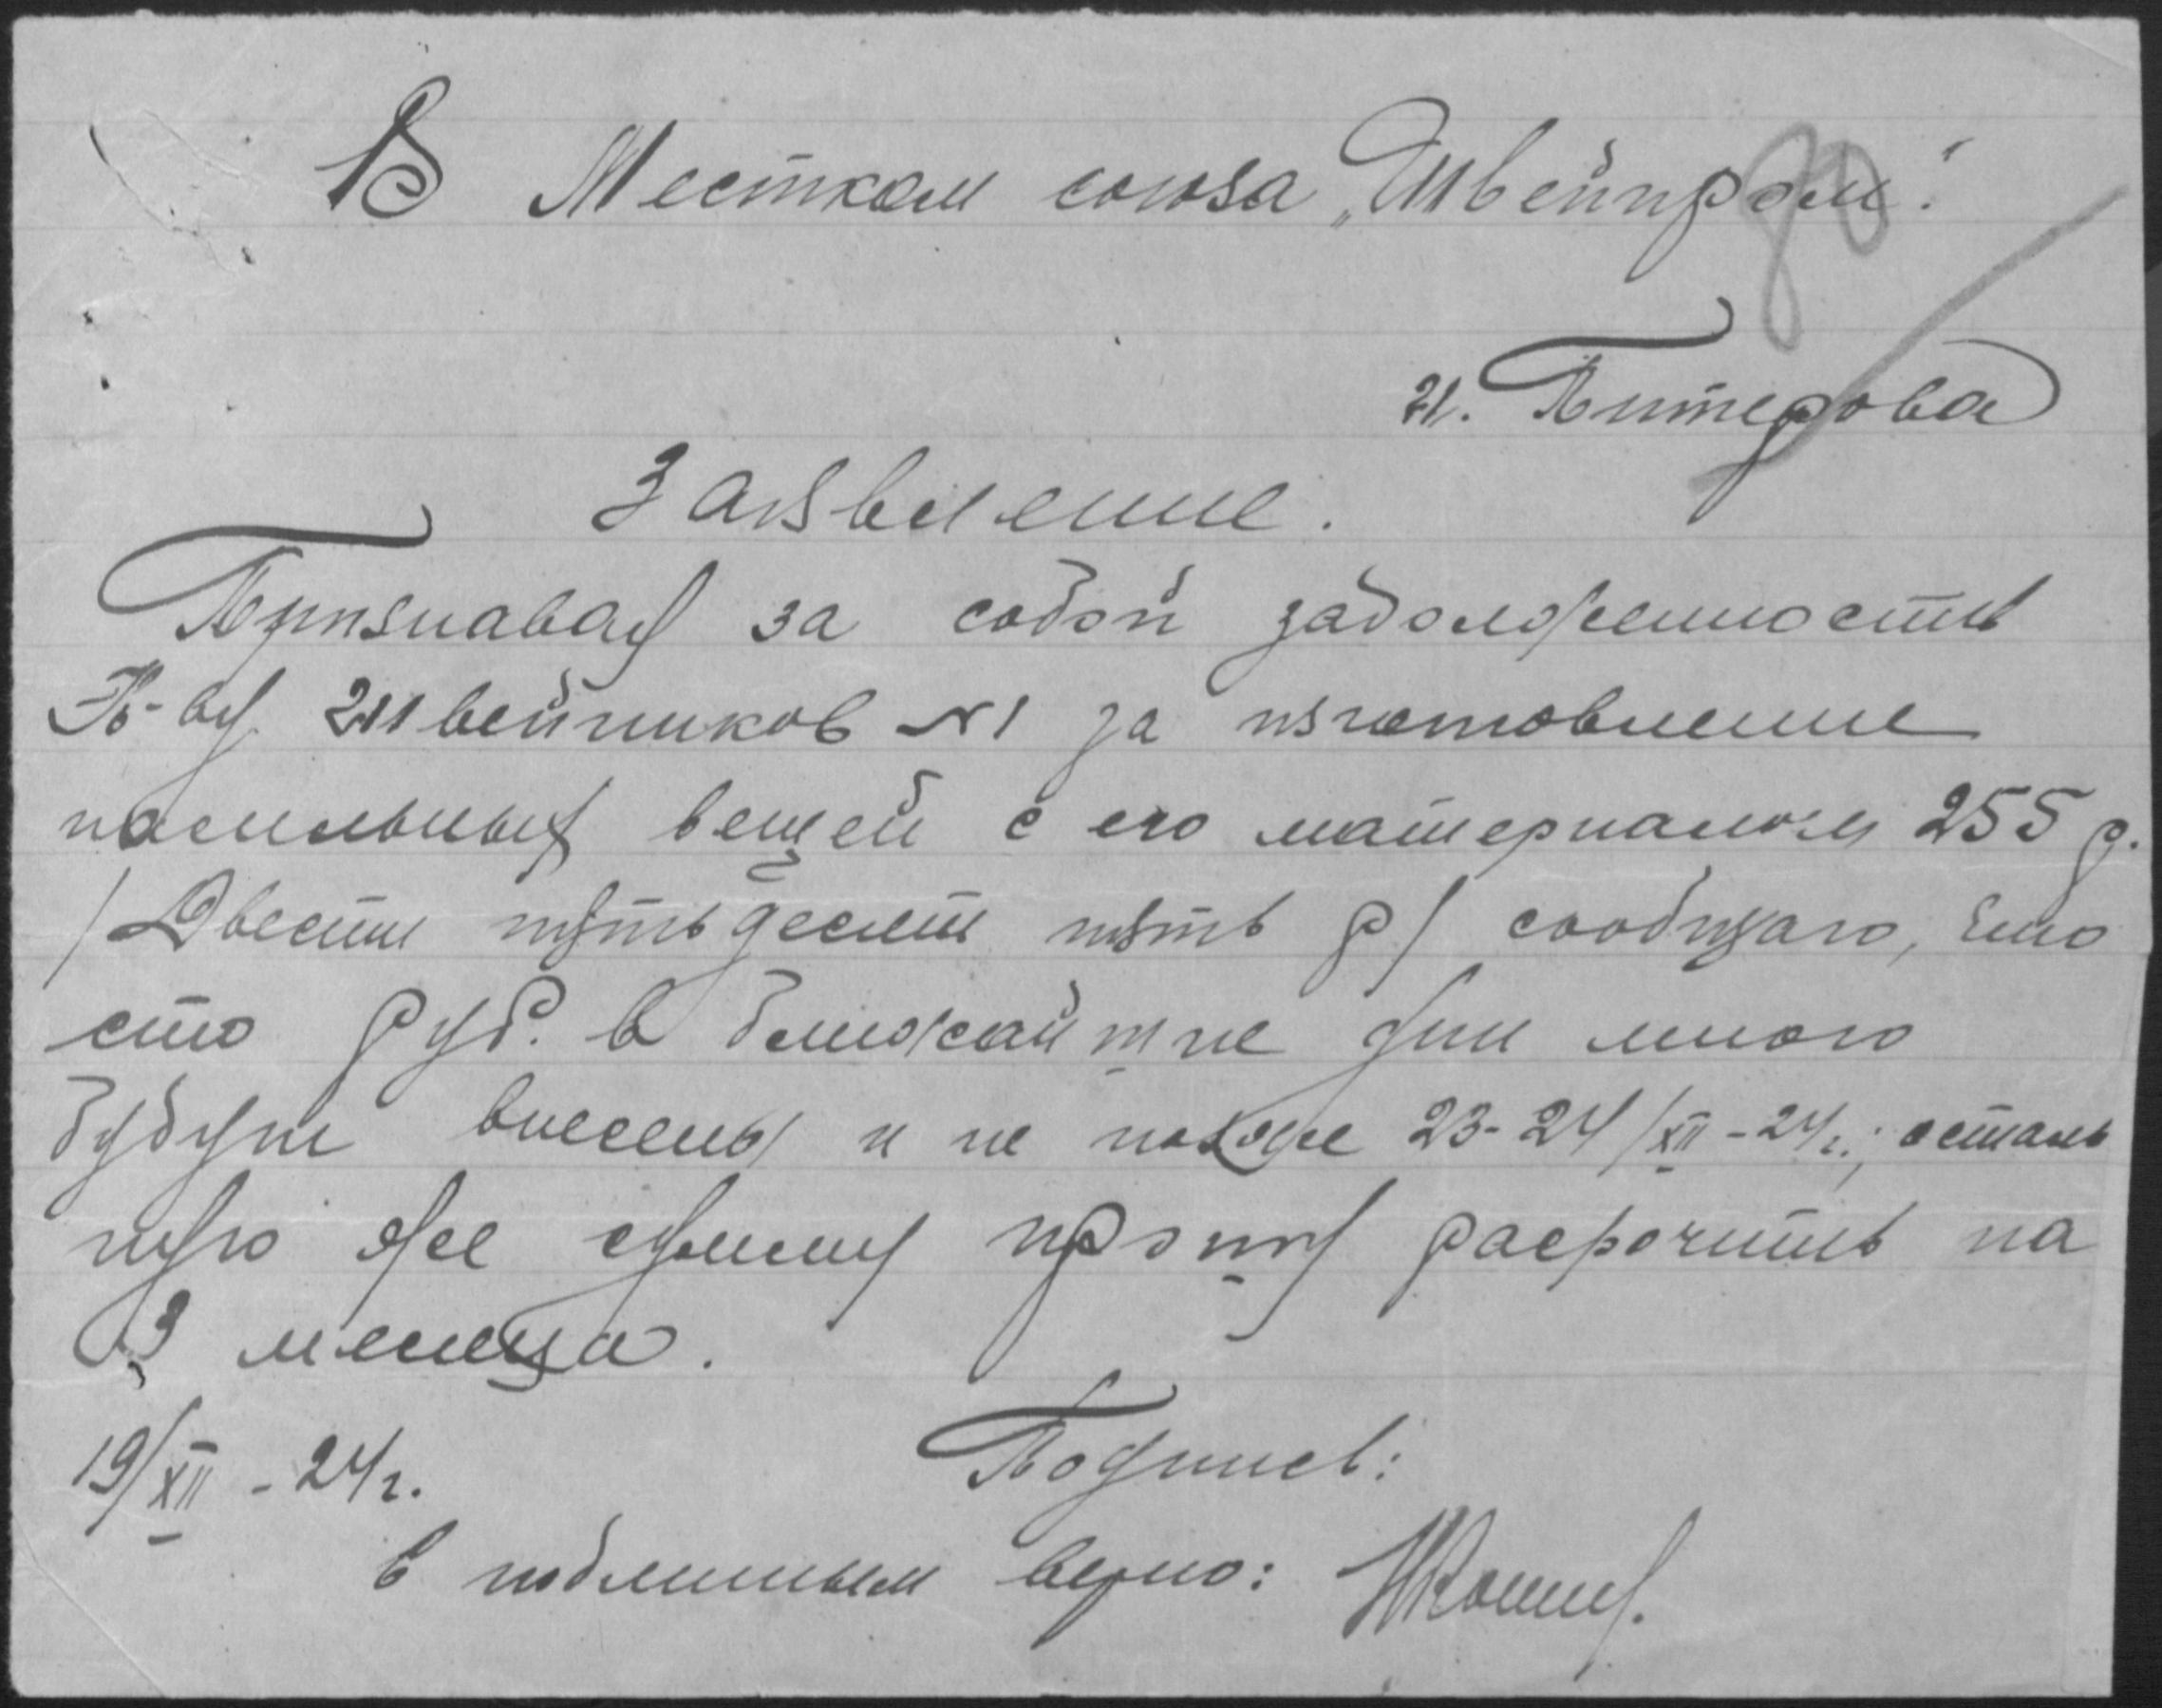 В Местком союза „Швейпром".
80
чл. Питерова
Заявление.
Признавая за собой задолженность
К-ву Швейников №1 за изготовление
носильных вещей с его материалом 255 р.
/Двести пятьдесят пять р/ сообщаю, что
сто руб. в ближайшие дни мною
будут внесены и не позже 23-24/XII-24г.; осталь
ную же сумму прошу расрочить на
3 месеца.
19/XII-24г. Подпись:
с подлинным верно: